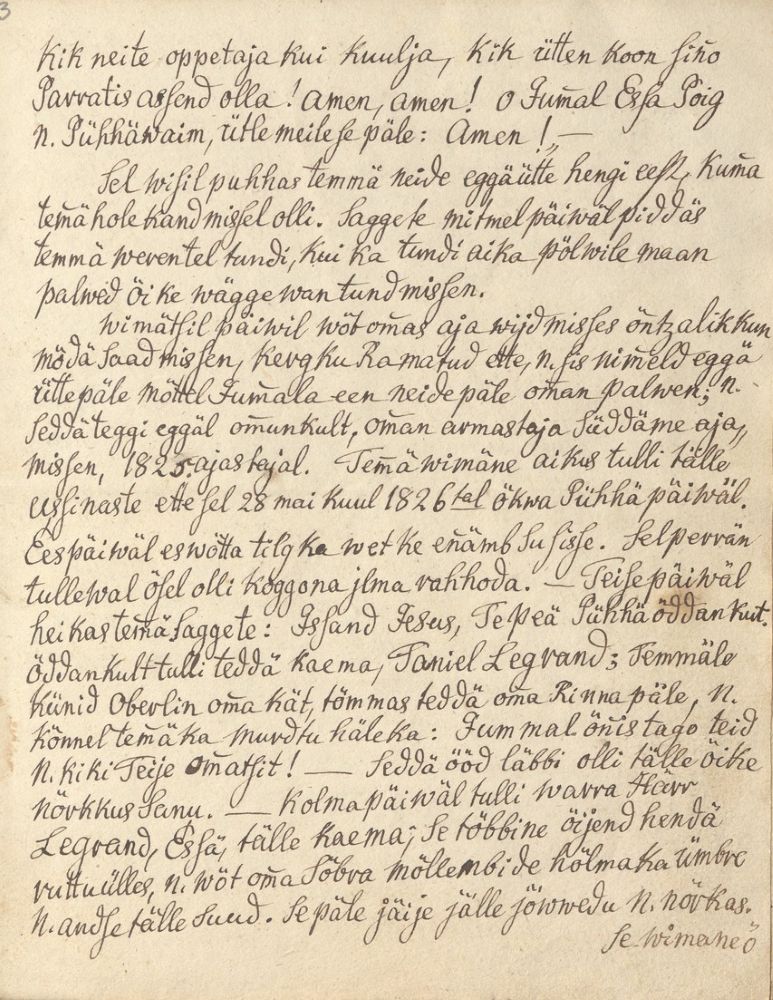 3
Kik neite oppetaja kui kuulja, kik ütten koon sin̄o
Parratis assend olla! Amen, amen! o Jum̄al Essa Poig
n. Pühhäwaim, ütle meile se päle: Amen! „—
Sel wisil puhhas temmä neide eggäütte hengi eest, kum̄a
tem̄ä hole kandmissel olli. Saggete mitmel päiwäl piddäs
temmä werentel tundi, kui ka tundi aika põlwile maan
palwed õike wäggewan tundmissen.
Wimätsil päiwil wõt om̄as aja wijdmisses õntzalikkun
mõdä saadmissen, kergku Ramatud ette, n. sis nim̄eld eggä
ütte päle mõttel Jum̄ala een neide päle om̄an palwen; n.
Seddä teggi eggäl om̄unkult, om̄an armastaja Süddäme aja„
missen, 1825 ajastajal. Tem̄ä wimäne aikus tulli tälle
ussinaste ette sel 28 mai kuul 1826 tal õkwa Pühhä päiwäl.
Ees päiwäl es wõtta tilgka wet ke en̄ämb Su sisse. Sel perrän
tullewal ösel olli koggona jlma rahhoda. — Teise päiwäl
heikas tem̄ä saggete: Issand Jesus, Te peä Pühhä õddankuit.
Õddankult tulli teddä kaema, Taniel Legrand; Temmäle
künid Oberlin om̄a kät, tõmmas teddä om̄a Rinna päle, n.
kõnnel tem̄ä ka murdtu häleka: Jummal õn̄istago teid
n. kiki Teije om̄atsit! — Seddä ööd läbbi olli tälle õike
nörkkus Sanu. — Kolma päiwäl tulli warra Härr
Legrand, Essä, tälle kaema; Se tõbbine õijend hendä
ruttu ülles, n. wõt om̄a Sõbra mõllembide hõlmaka ümbre
n. andse tälle suud. Se päle jäije jälle jõwwedu n. nörkas.
Se wimane ö